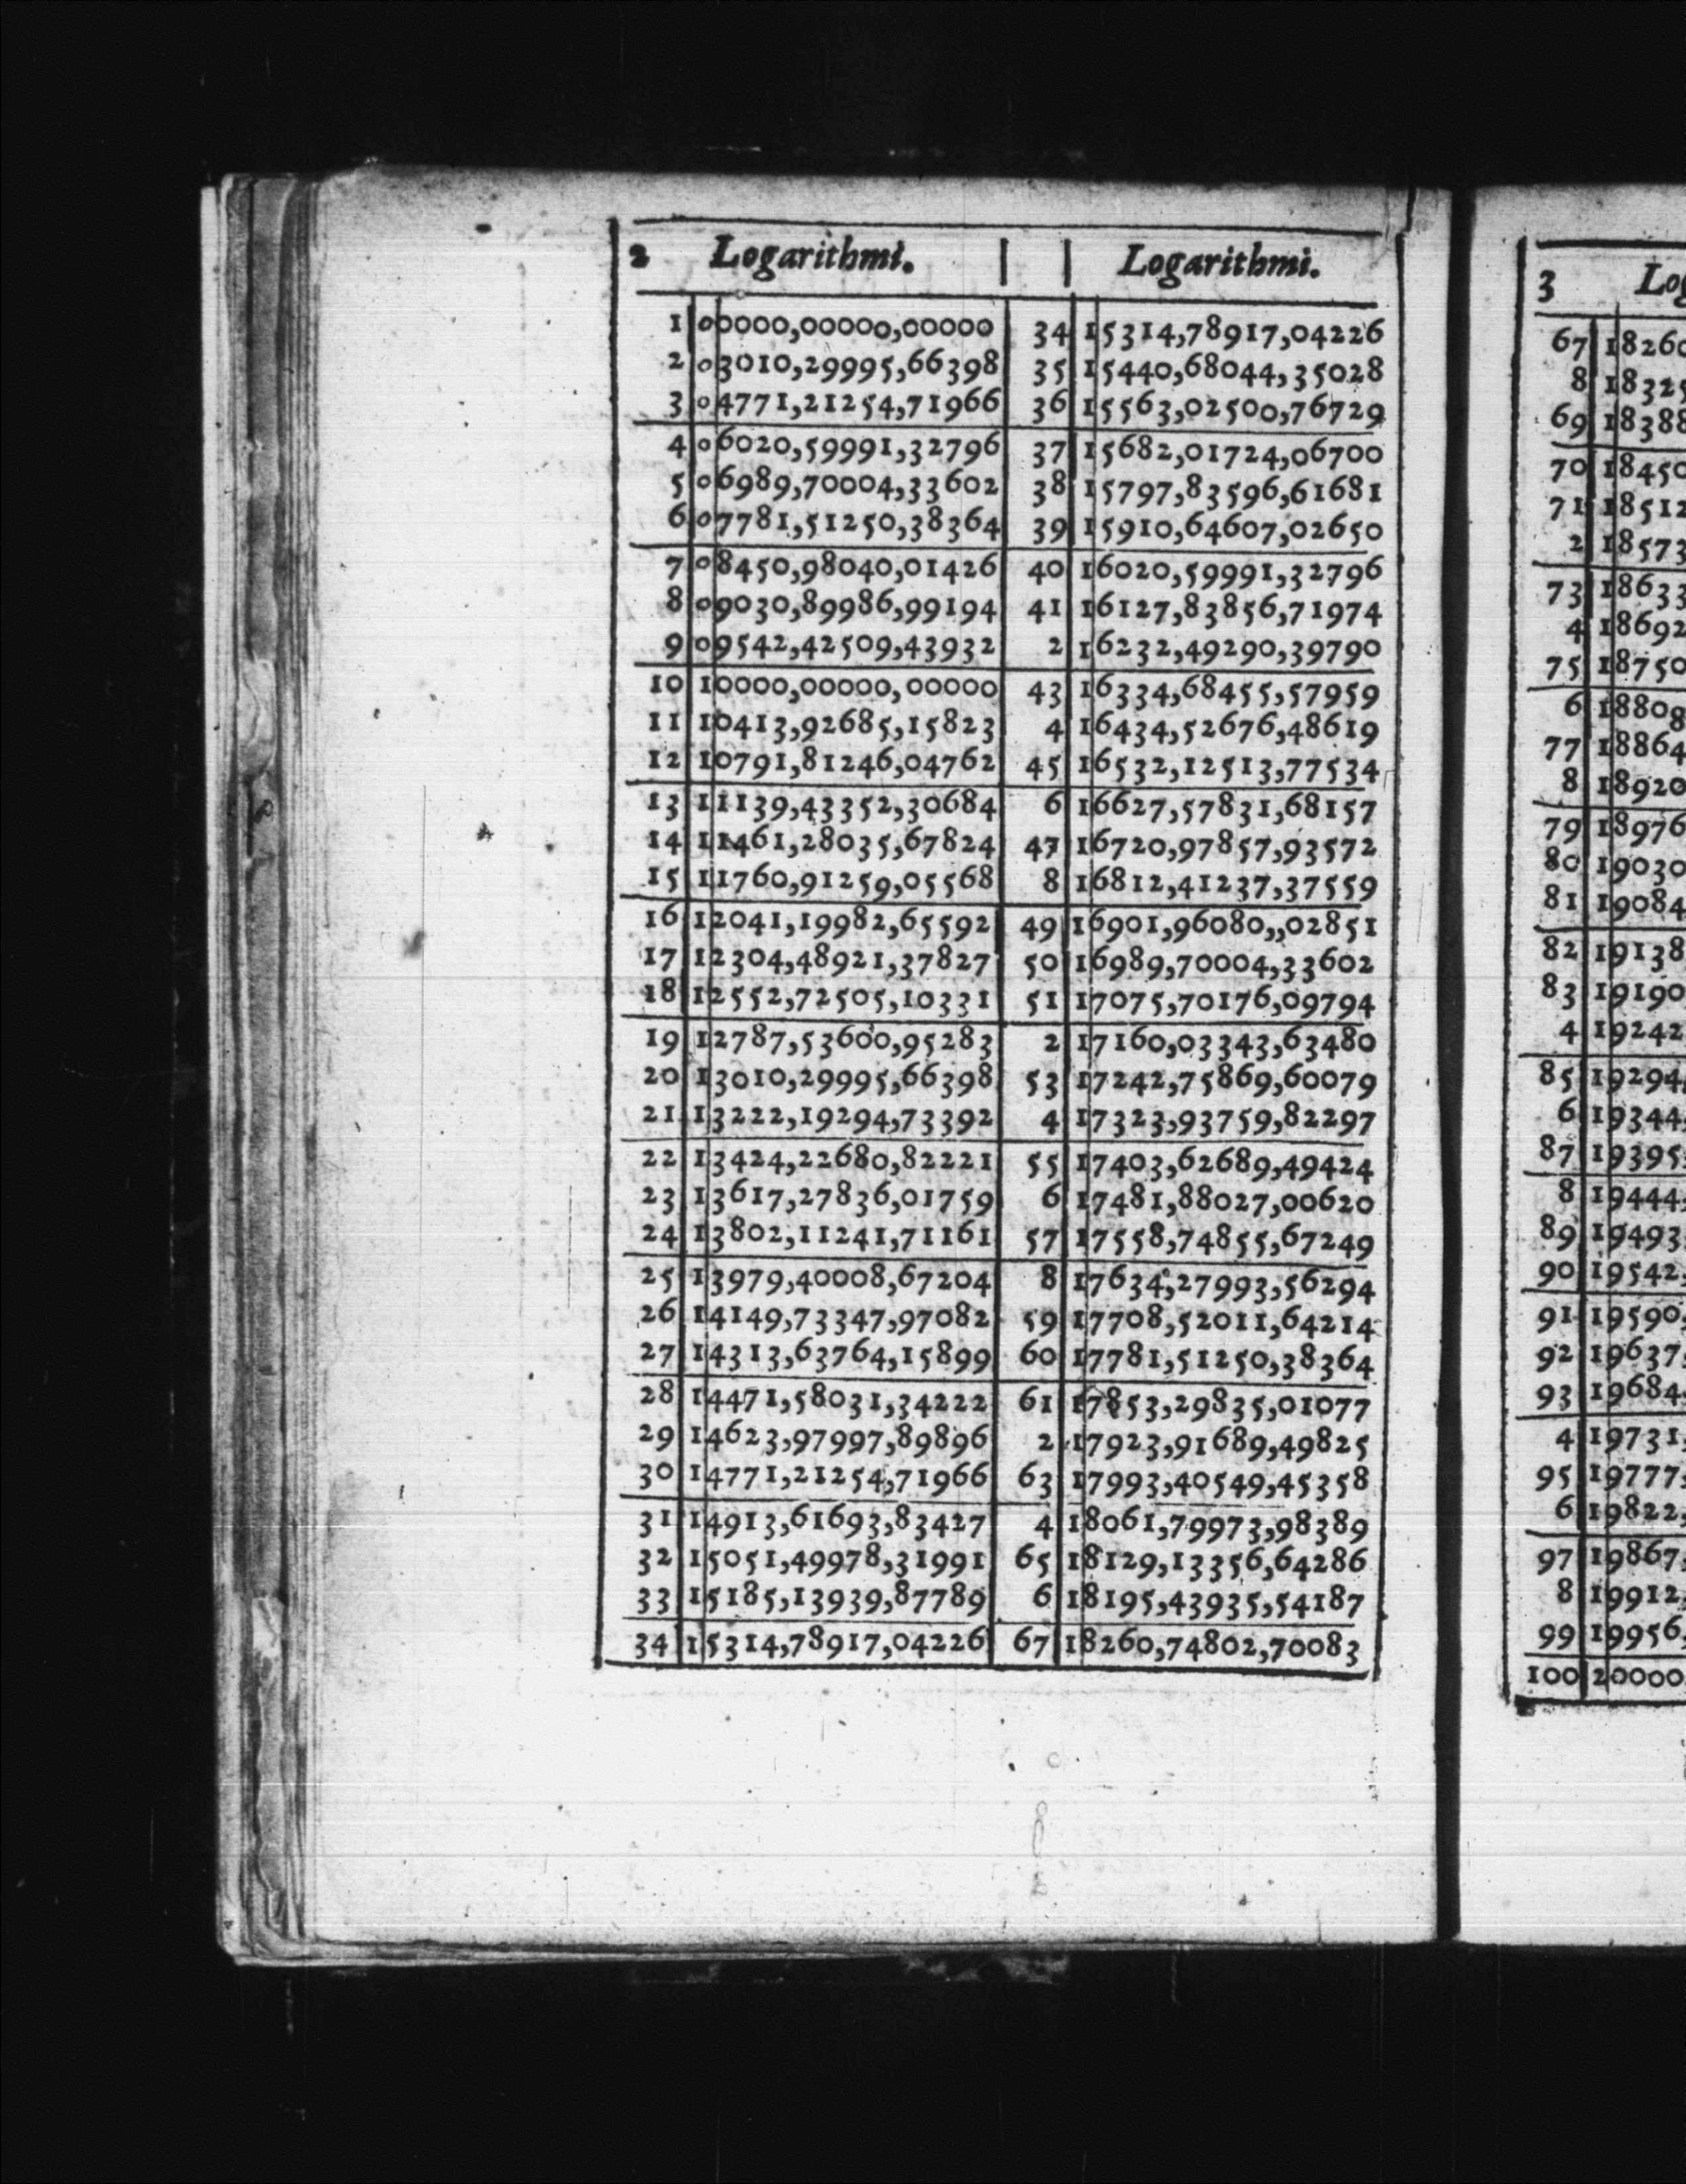 2 Logarithmi. Logarithmi.
1 00000,00000,00000 34 15314,78917,04226
2 03010,29995,66398 35 15440,68044,35028
3 04771,21254,71966 36 15563,02500,76729
4 06020,59991,32796 37 15682,01724,06700
5 06989,70004,33602 38 15797,83596,61681
6 07781,51250,38364 39 15910,64607,02650
7 08450,98040,01426 40 16020,59991,32796
8 09030,89986,99194 41 16127,83856,71974
9 09542,42509,43932 2 16232,49290,39790
10 10000,00000,00000 43 16334,68455,57959
11 10413,92685,15823 4 16434,52676,48619
12 10791,81246,04762 45 16532,12513,77534
13 11139,43352,30684 6 16627,57831,68157
14 11461,28035,67824 47 16720,97857,93572
15 11760,91259,05568 8 16812,41237,37559
16 12041,19982,65592 49 16901,96080,,02851
17 12304,48921,37827 50 16989,70004,33602
18 12552,72505,10331 51 17075,70176,09794
19 12787,53600,95283 2 17160,03343,63480
20 13010,29995,66398 53 17242,75869,60079
21 13222,19294,73392 4 17323,93759,82297
22 13424,22680,82221 55 17403,62689,49424
23 13617,27836,01759 6 17481,88027,00620
24 13802,11241,71161 57 17558,74855,67249
25 13979,40008,67204 8 17634,27993,56294
26 14149,73347,97082 59 17708,52011,64214
27 14313,63764,15899 60 17781,51250,38364
28 14471,58031,34222 61 17853,29835,01077
29 14623,97997,89896 2 17923,91689,49825
30 14771,21254,71966 63 17993,40549,45358
31 14913,61693,83427 4 18061,79973,98389
32 15051,49978,31991 65 18129,13356,64286
33 15185,13939,87789 6 18195,43935,54187
34 15314,78917,04226 67 18260,74802,70083
3 Log
67 18260
8 18325
69 18388
70 18450
71 18512
2 18573
73 18633
4 18692
75 18750
6 18808
77 18864
8 18920
79 18976
80 19030
81 19084
82 19138
83 19190
4 19242
85 19294,
6 19344,
87 19395,
8 19444,
89 19493,
90 19542,
91 19590,
92 19637,
93 19684,
4 19731,
95 19777,
6 19822,
97 19867,
8 19912,
99 19956,
100 20000,